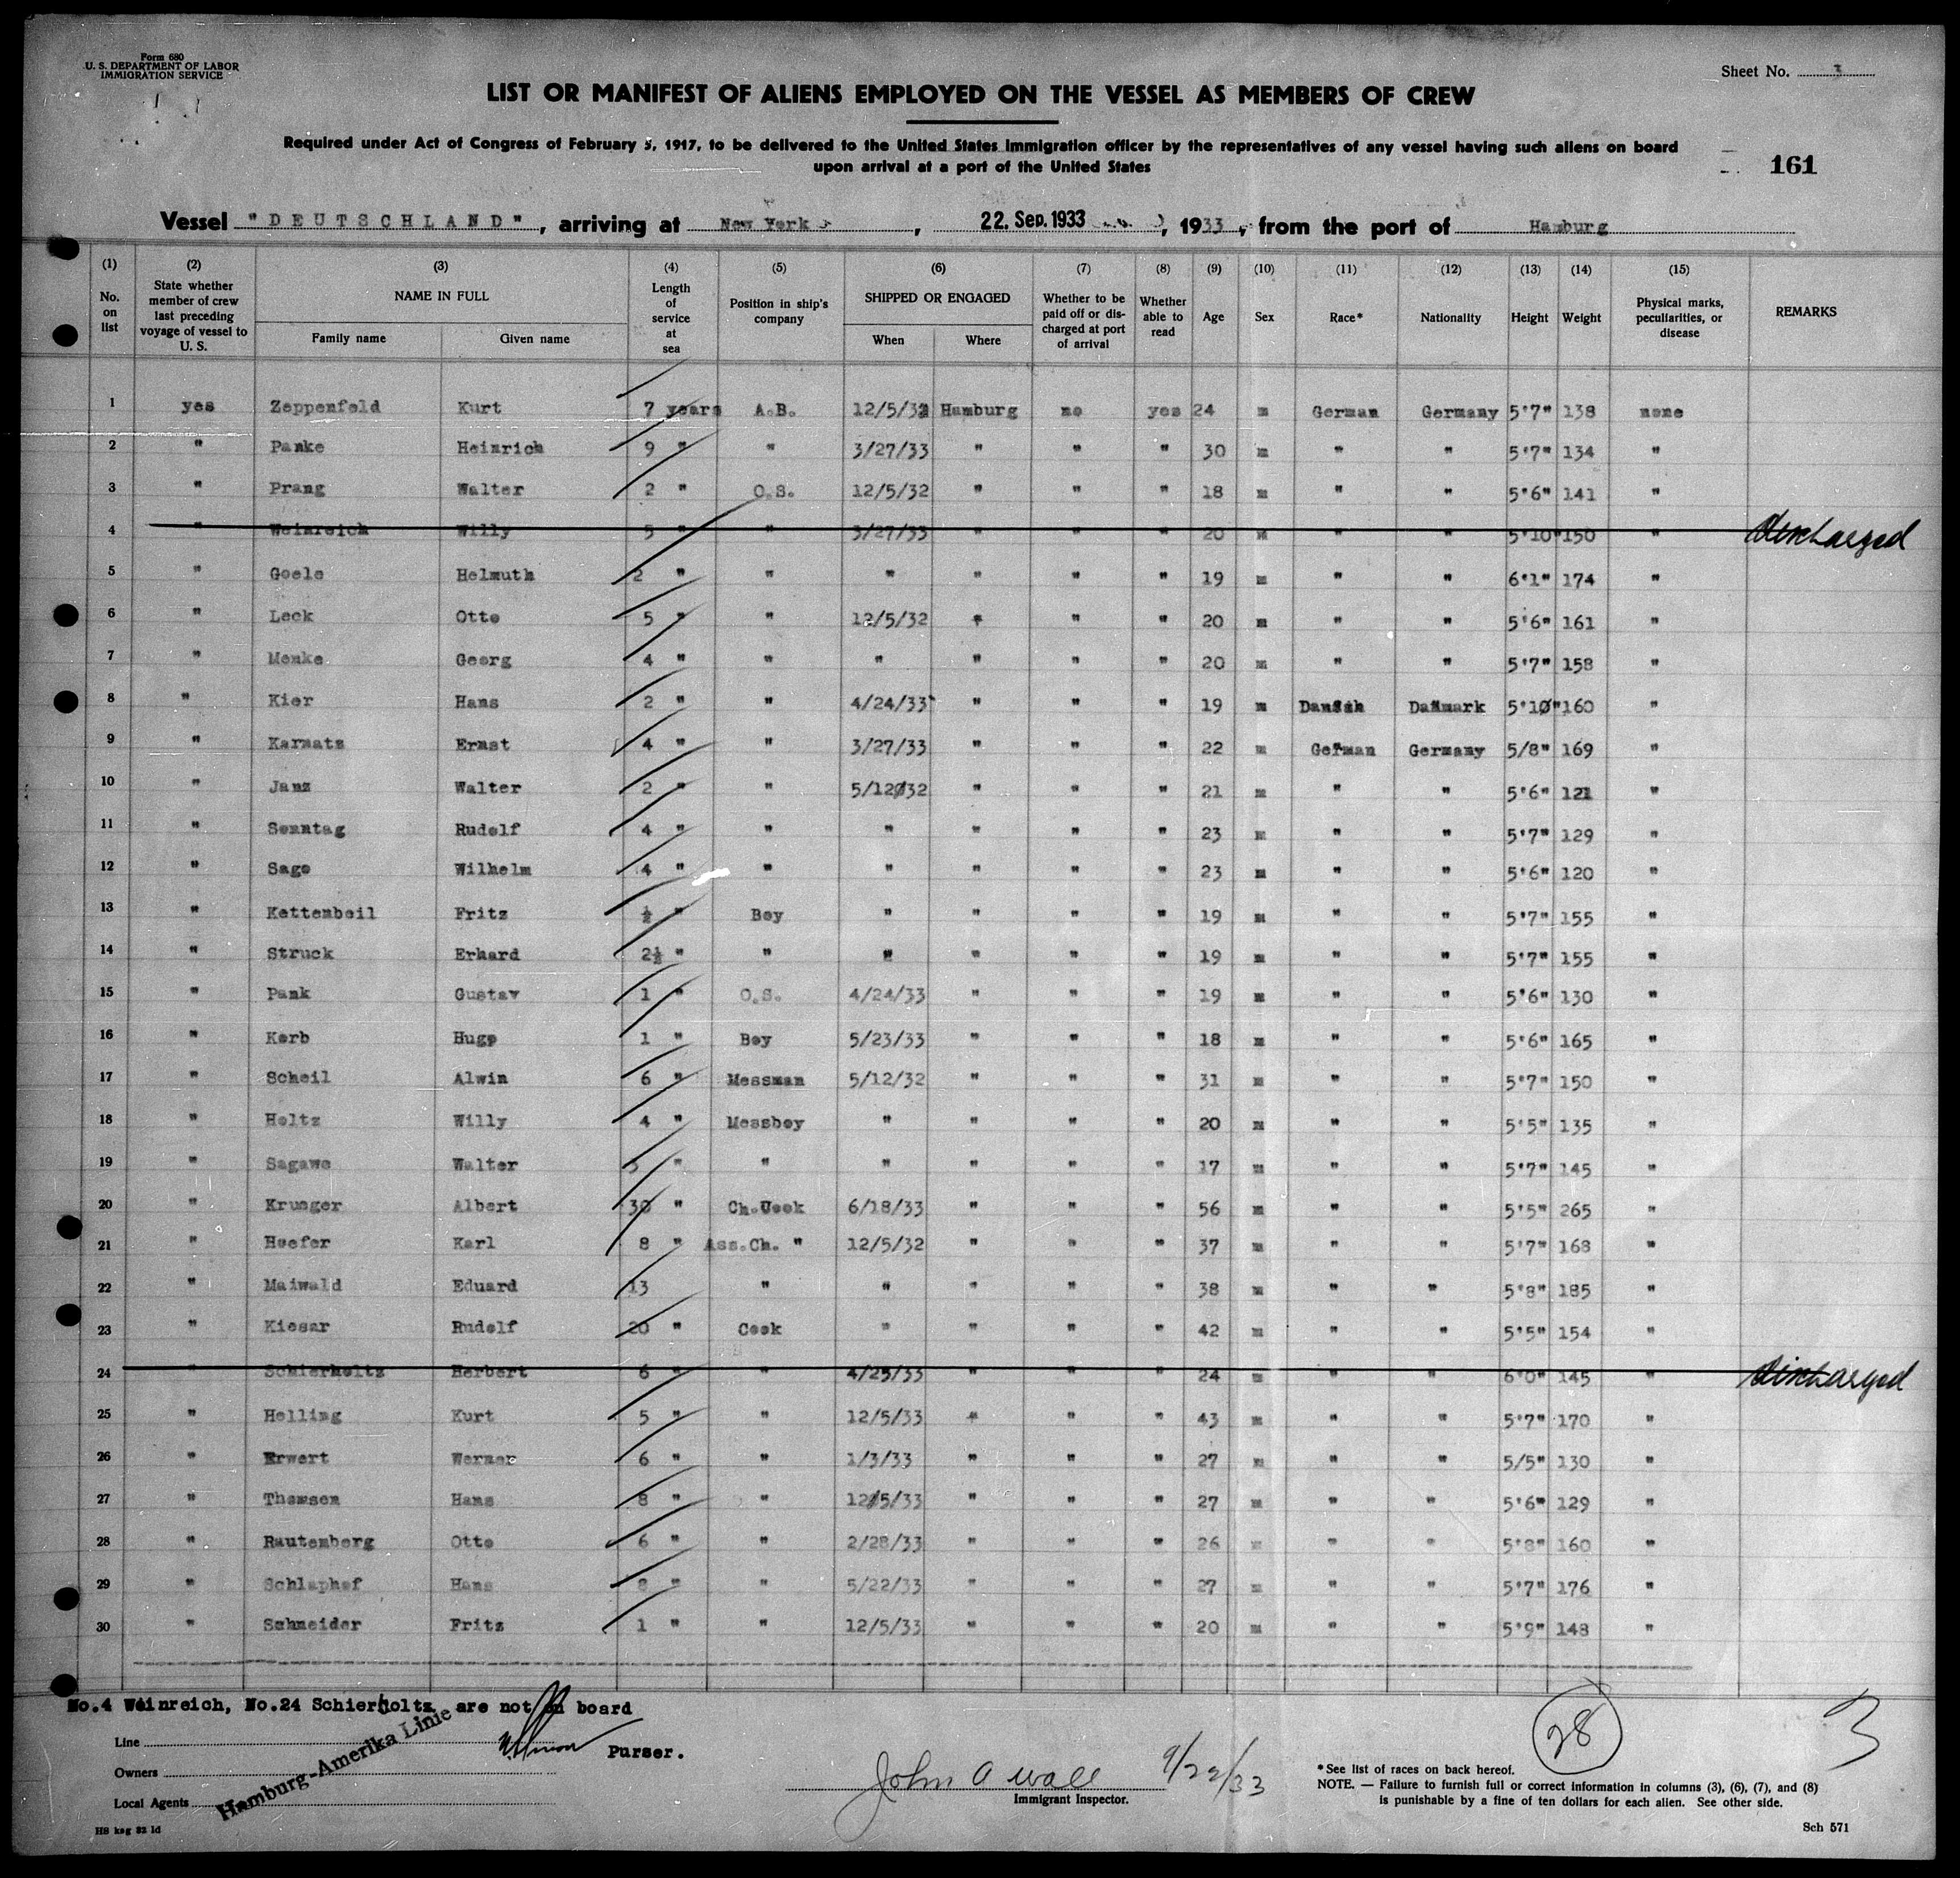 Form 680
U. S. DEPARTMENT OF LABOR
IMMIGRATION SERVICE
Sheet No. 3
LIST OR MANIFEST OF ALIENS EMPLOYED ON THE VESSEL AS MEMBERS OF CREW
Required under Act of Congress of February 5, 1917, to be delivered to the United States Immigration officer by the representatives of any vessel having such aliens on board
upon arrival at a port of the United States
161
Vessel "DEUTSCHLAND", arriving at New York, 22. Sep. 1933, 1933, from the port of Hamburg
(1) (2) (3) (4) (5) (6) (7) (8) (9) (10) (11) (12) (13) (14) (15)
No. on list | State whether member of crew last preceding voyage of vessel to U. S. | NAME IN FULL Family name Given name | Length of service at sea | Position in ship's company | SHIPPED OR ENGAGED When Where | Whether to be paid off or discharged at port of arrival | Whether able to read | Age | Sex | Race* | Nationality | Height | Weight | Physical marks, peculiarities, or disease | REMARKS
1 yes Zeppenfeld Kurt 7 years A.B. 12/5/32 Hamburg no yes 24 m German Germany 5'7" 138 none
2 " Panke Heinrich 9 " " 3/27/33 " " " 30 m " " 5'7" 134 "
3 " Prang Walter 2 " O.S. 12/5/32 " " " 18 m " " 5'6" 141 "
4 " Weinreich Willy 5 " " 3/27/33 " " " 20 m " " 5'10" 150 " discharged
5 " Goele Helmuth 2 " " " " " " 19 m " " 6'1" 174 "
6 " Leck Otto 5 " " 12/5/32 " " " 20 m " " 5'6" 161 "
7 " Menke Georg 4 " " " " " " 20 m " " 5'7" 158 "
8 " Kier Hans 2 " " 4/24/33 " " " 19 m Danish Danmark 5'10" 160 "
9 " Karmatz Ernst 4 " " 3/27/33 " " " 22 m German Germany 5/8" 169 "
10 " Janz Walter 2 " " 5/12/32 " " " 21 m " " 5'6" 121 "
11 " Sonntag Rudolf 4 " " " " " " 23 m " " 5'7" 129 "
12 " Sage Wilhelm 4 " " " " " " 23 m " " 5'6" 120 "
13 " Kettembeil Fritz ½ " Boy " " " " 19 m " " 5'7" 155 "
14 " Struck Erhard 2½ " " " " " " 19 m " " 5'7" 155 "
15 " Pank Gustav 1 " O.S. 4/24/33 " " " 19 m " " 5'6" 130 "
16 " Korb Hugo 1 " Boy 5/23/33 " " " 18 m " " 5'6" 165 "
17 " Scheil Alwin 6 " Messman 5/12/32 " " " 31 m " " 5'7" 150 "
18 " Holtz Willy 4 " Messboy " " " " 20 m " " 5'5" 135 "
19 " Sagawe Walter 3 " " " " " " 17 m " " 5'7" 145 "
20 " Krueger Albert 30 " Ch.Cook 6/18/33 " " " 56 m " " 5'5" 265 "
21 " Hoefer Karl 8 " Ass.Ch. " 12/5/32 " " " 37 m " " 5'7" 168 "
22 " Maiwald Eduard 13 " " " " " 38 m " " 5'8" 185 "
23 " Kiesar Rudolf 20 " Cook " " " " 42 m " " 5'5" 154 "
24 " Schierholtz Herbert 6 " " 4/25/33 " " " 24 m " " 6'0" 145 " discharged
25 " Helling Kurt 5 " " 12/5/33 " " " 43 m " " 5'7" 170 "
26 " Erwert Werner 6 " " 1/3/33 " " " 27 m " " 5/5" 130 "
27 " Thomsen Hans 8 " " 12/5/33 " " " 27 m " " 5'6" 129 "
28 " Rautenberg Otto 6 " " 2/28/33 " " " 26 m " " 5'8" 160 "
29 " Schlaphof Hans 8 " " 5/22/33 " " " 27 m " " 5'7" 176 "
30 " Schneider Fritz 1 " " 12/5/33 " " " 20 m " " 5'9" 148 "
No.4 Weinreich, No.24 Schierholtz are not on board
28 3
Line
Purser.
Owners
Hamburg-Amerika Linie
Local Agents
John A Wall 9/22/33
Immigrant Inspector.
*See list of races on back hereof.
NOTE. — Failure to furnish full or correct information in columns (3), (6), (7), and (8)
is punishable by a fine of ten dollars for each alien. See other side.
HS ksg 82 1d
Sch 571